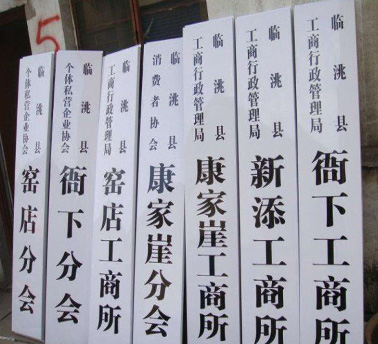 5
临洮县
个体私营企业协会
窑店分会
临洮县
个体私营企业协会
衙下分会
临洮县
工商行政管理局
窑店工商所
临洮县
消费者协会
康家崖分会
临洮县
工商行政管理局
康家崖工商所
临洮县
工商行政管理局
新添工商所
临洮县
工商行政管理局
衙下工商所